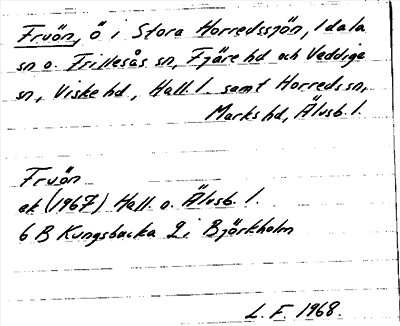 Fruön, ö i Stora Horredssjön, Idala
sn o. Frillesås sn, Fjäre hd och Veddige
sn, Viske hd, Hall. l. samt Horreds sn,
Marks hd, Älvsb. l.
Fruön
ek (1967) Hall. o. Älvsb. l.
6 B Kungsbacka 2 i Björkholm
L. F. 1968.